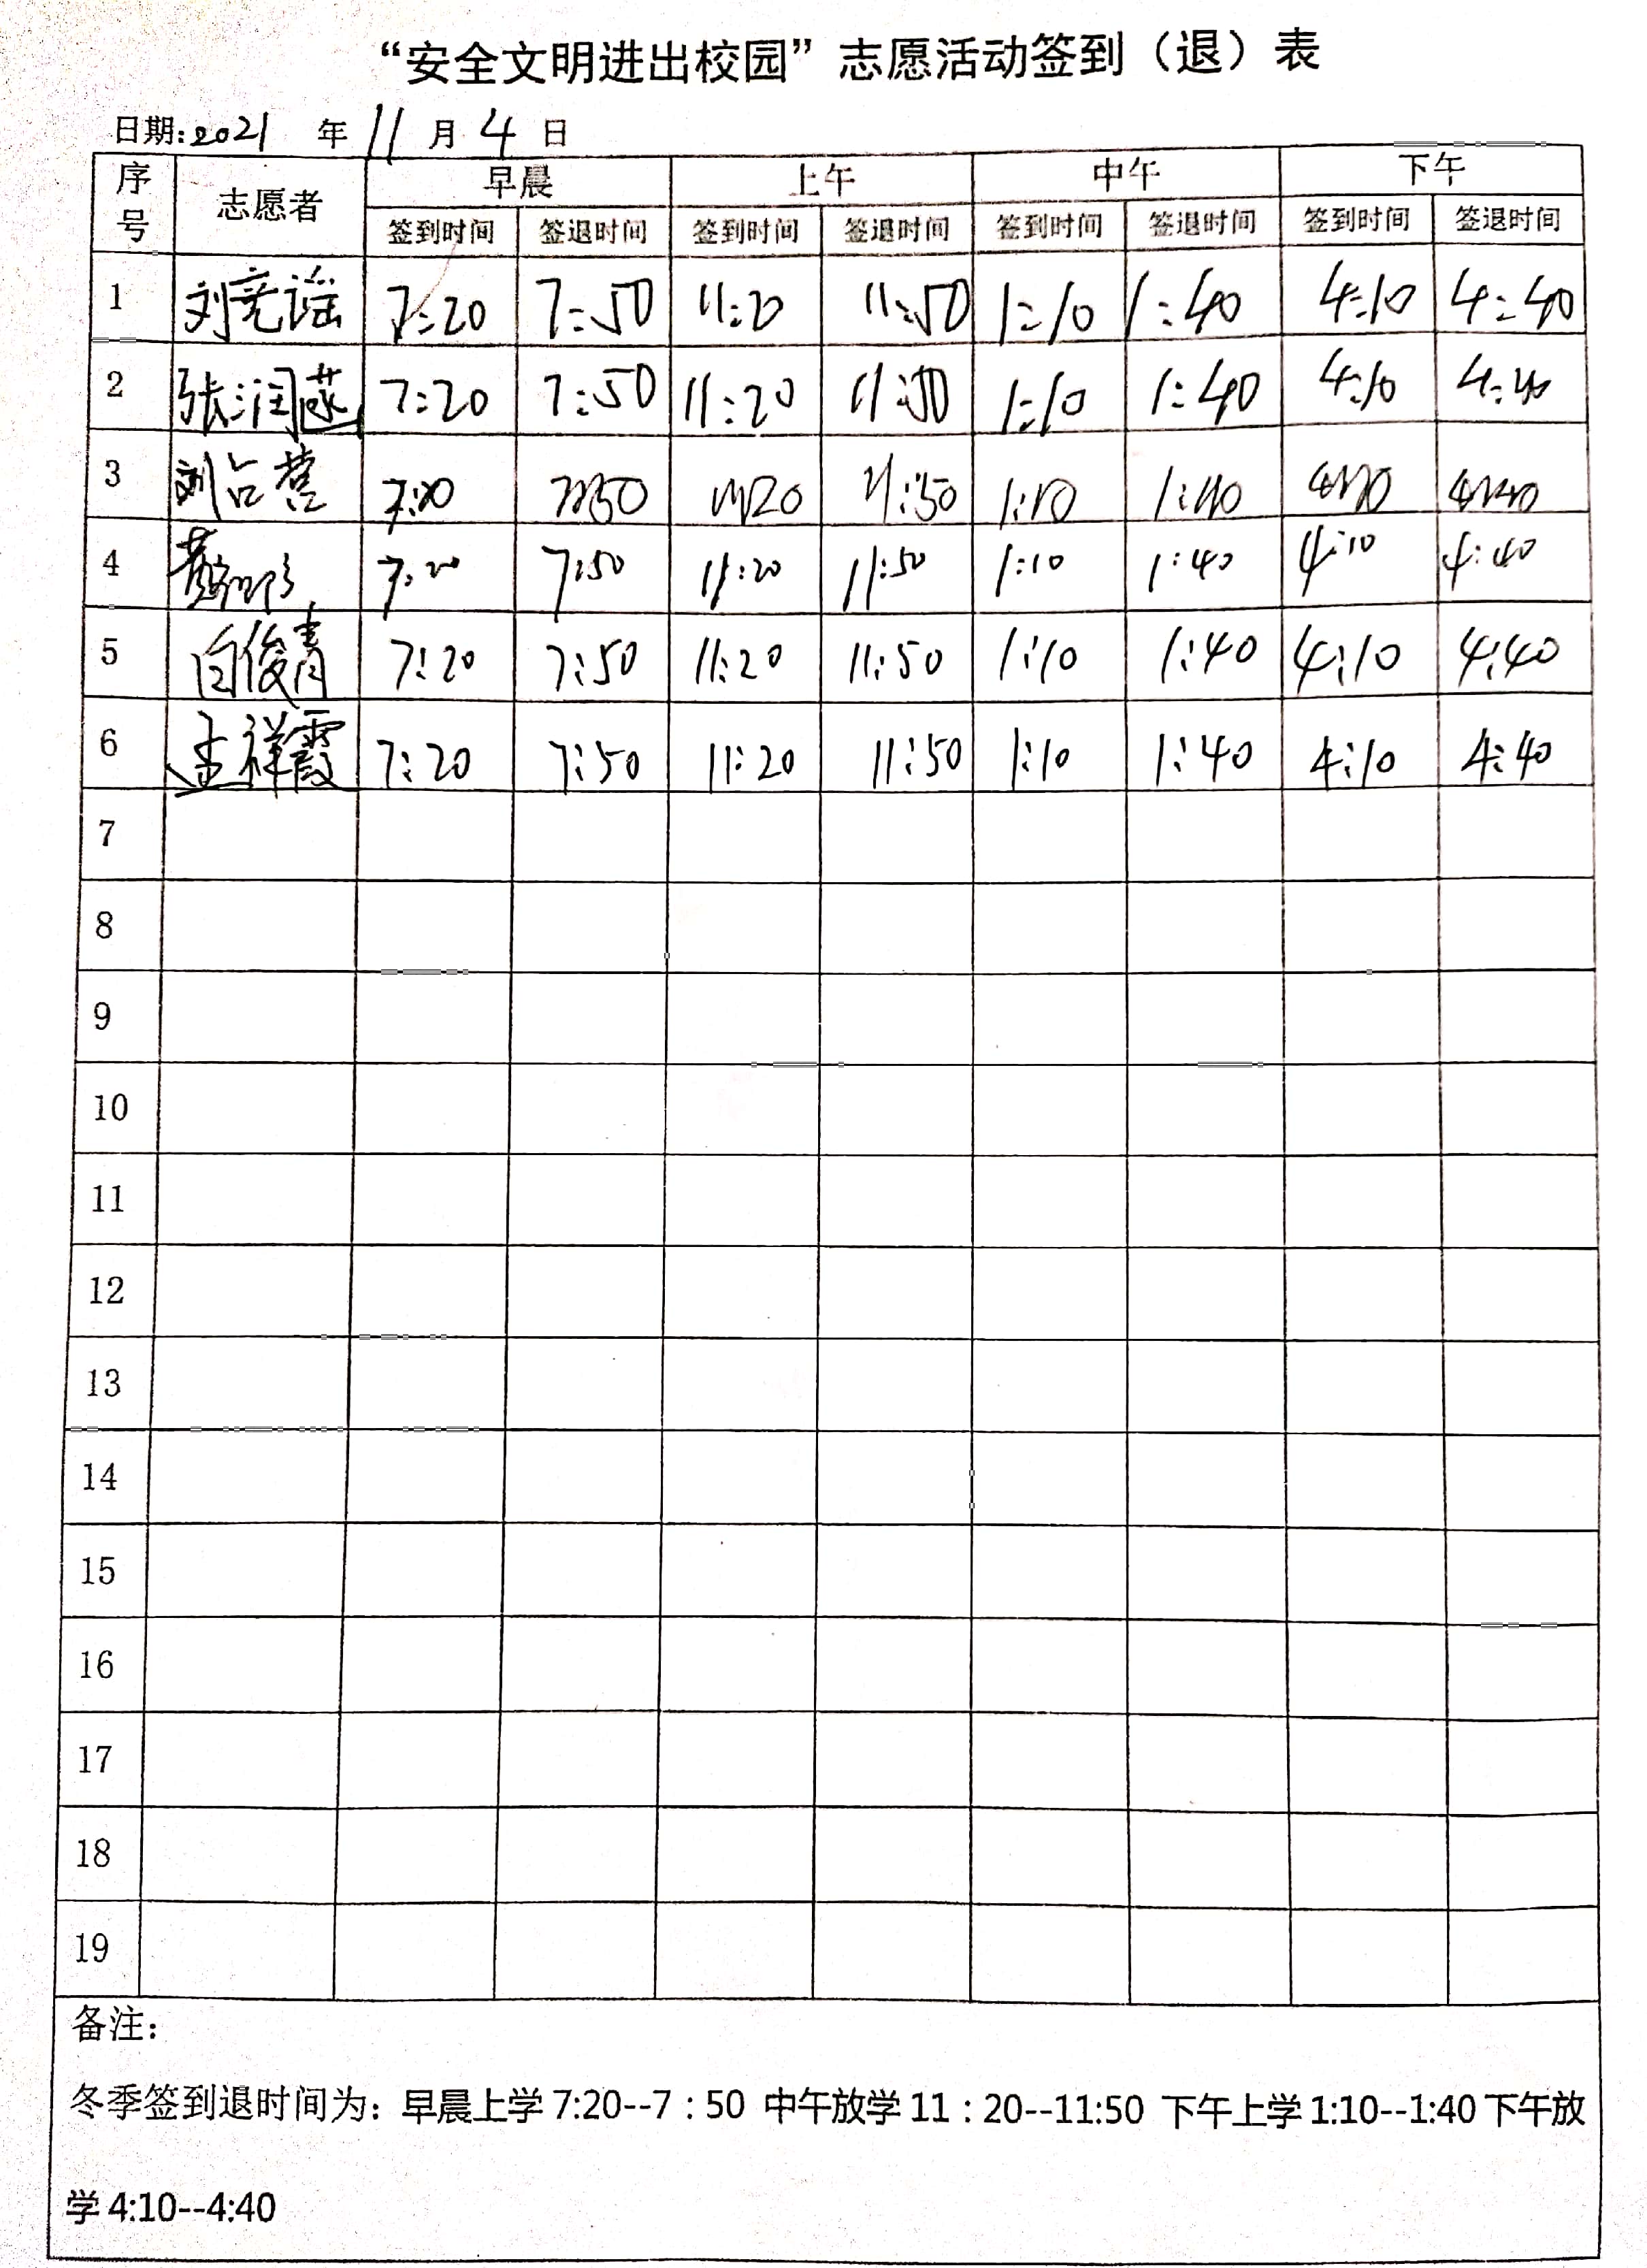 “安全文明进出校园”志愿活动签到（退）表
日期:2021 年 11 月 4 日
序号 志愿者 早晨 上午 中午 下午
签到时间 签退时间 签到时间 签退时间 签到时间 签退时间 签到时间 签退时间
1 刘亮谣 7:20 7:50 11:20 11:50 1:10 1:40 4:10 4:40
2 张润 7:20 7:50 11:20 11:50 1:10 1:40 4:10 4:40
3 刘占营 7:20 7:50 11:20 11:50 1:10 1:40 4:10 4:40
4 7:20 7:50 11:20 11:50 1:10 1:40 4:10 4:40
5 白俊青 7:20 7:50 11:20 11:50 1:10 1:40 4:10 4:40
6 王祥霞 7:20 7:50 11:20 11:50 1:10 1:40 4:10 4:40
7
8
9
10
11
12
13
14
15
16
17
18
19
备注：
冬季签到退时间为：早晨上学 7:20--7：50 中午放学 11：20--11:50 下午上学 1:10--1:40 下午放
学 4:10--4:40